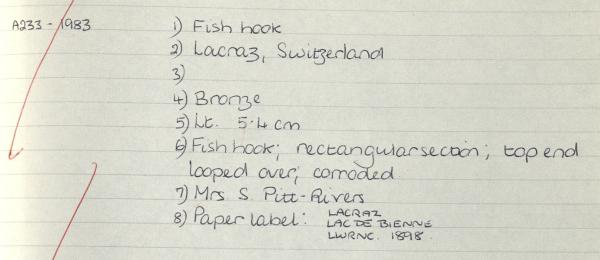 A233 - 1983
1) Fish hook
2) Lacraz, Switzerland
3)
4) Bronze
5) Lt. 5.4 cm
6) Fish hook; rectangular section; top end
looped over; corroded
7) Mrs S. Pitt-Rivers
8) Paper label: LACRAZ
LAC DE BIENNE
LWRNC. 1898.